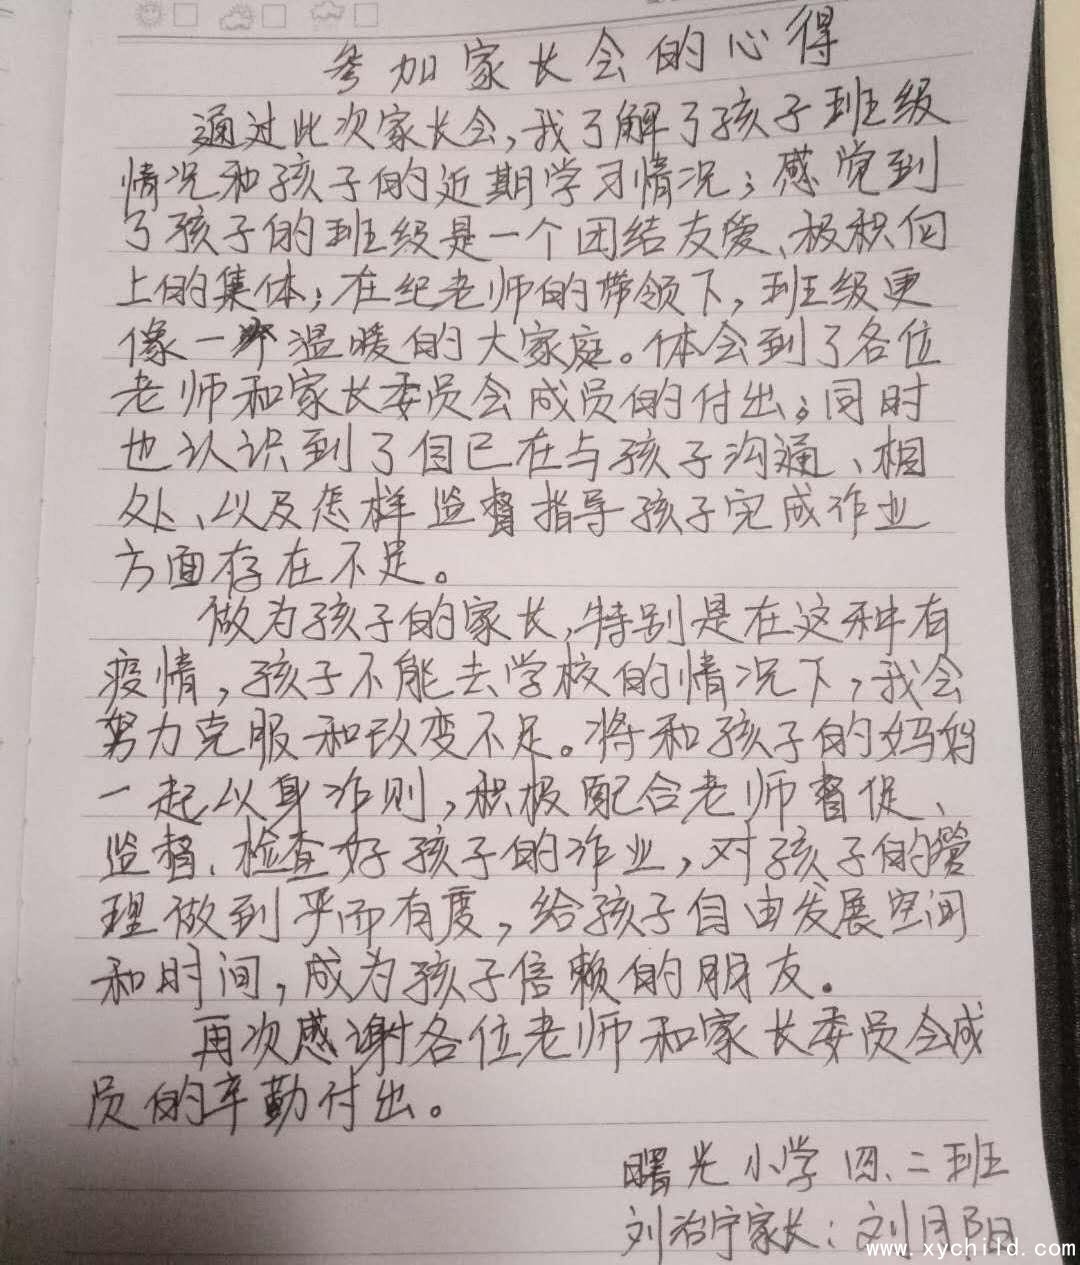 参加家长会的心得
通过此次家长会,我了解了孩子班级
情况和孩子的近期学习情况;感觉到
了孩子的班级是一个团结友爱、极积向
上的集体;在纪老师的带领下,班级更
像一个温暖的大家庭。体会到了各位
老师和家长委员会成员的付出;同时
也认识到了自已在与孩子沟通、相
处、以及怎样监督指导孩子完成作业
方面存在不足。
做为孩子的家长,特别是在这种有
疫情,孩子不能去学校的情况下,我会
努力克服和改变不足。将和孩子的妈妈
一起以身作则,积极配合老师督促、
监督、检查好孩子的作业,对孩子的管
理做到严而有度,给孩子自由发展空间
和时间,成为孩子信赖的朋友。
再次感谢各位老师和家长委员会成
员的辛勤付出。
曙光小学四、二班
刘治宁家长:刘月阳
www.xychild.com